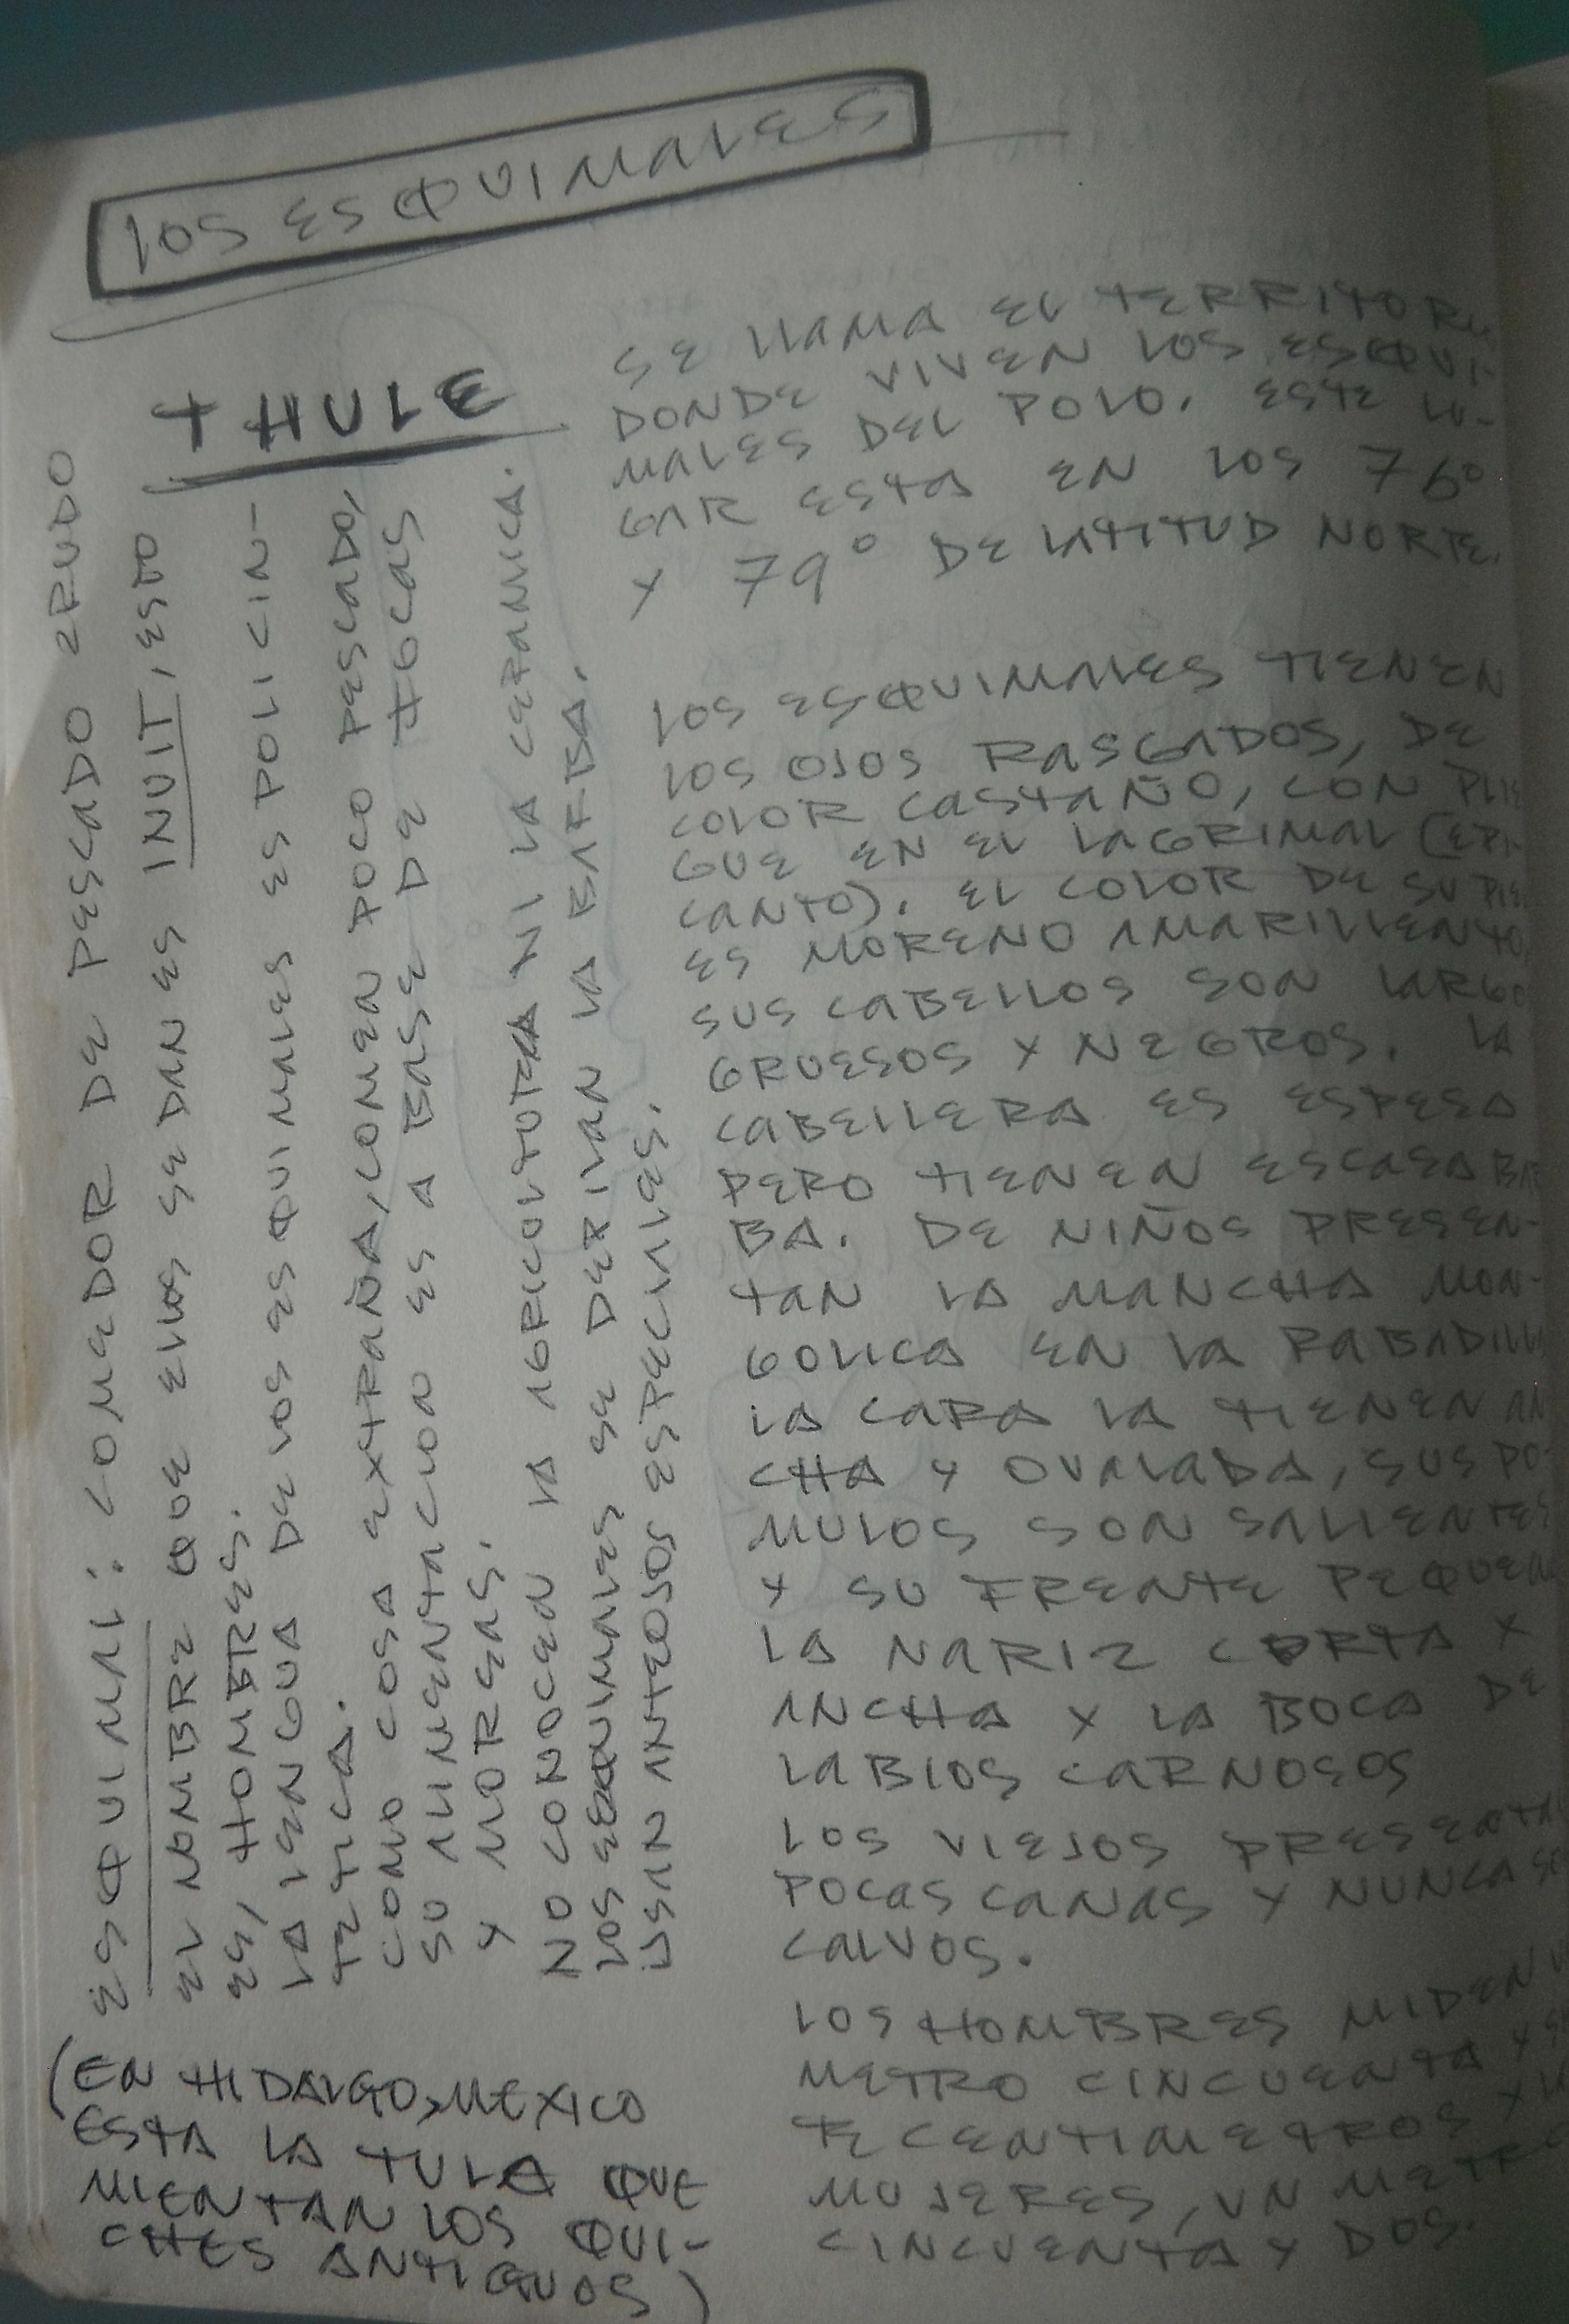 LOS ESQUIMALES
THULE
SE LLAMA EL TERRITORI
DONDE VIVEN LOS ESQUI-
MALES DEL POLO. ESTE LU-
GAR ESTA EN LOS 76°
Y 79° DE LATITUD NORTE.
LOS ESQUIMALES TIENEN
LOS OJOS RASGADOS, DE
COLOR CASTAÑO, CON PLIE
GUE EN EL LAGRIMAL (EPI-
CANTO). EL COLOR DE SU PIE
ES MORENO AMARILLENTO,
SUS CABELLOS SON LARGO
GRUESOS Y NEGROS. LA
CABELLERA ES ESPESA
PERO TIENEN ESCASA BAR
BA. DE NIÑOS PRESEN-
TAN LA MANCHA MON-
GOLICA EN LA RABADILL
LA CARA LA TIENEN AN
CHA Y OVALADA, SUS PO-
MULOS SON SALIENTES
Y SU FRENTE PEQUEÑ
LA NARIZ CORTA Y
ANCHA Y LA BOCA DE
LABIOS CARNOSOS
LOS VIEJOS PRESENTA
POCAS CANAS Y NUNCA SO
CALVOS.
LOS HOMBRES MIDEN U
METRO CINCUENTA Y SI
TE CENTIMETROS Y LA
MUJERES, UN METRO
CINCUENTA Y DOS.
ESQUIMAL: COMEDOR DE PESCADO CRUDO
EL NOMBRE QUE ELLOS SE DAN ES INUIT, ESTO
ES, HOMBRES.
LA LENGUA DE LOS ESQUIMALES ES POLICIN-
TETICA.
COMO COSA EXTRAÑA, COMEN POCO PESCADO,
SU ALIMENTACION ES A BASE DE FOCAS
Y MORSAS.
NO CONOCEN LA AGRICULTURA NI LA CERAMICA.
LOS ESQUIMALES SE DEPILAN LA BARBA.
USAN ANTEOJOS ESPECIALES.
(EN HIDALGO, MEXICO
ESTA LA TULA QUE
MIENTAN LOS QUI-
CHES ANTIGUOS)